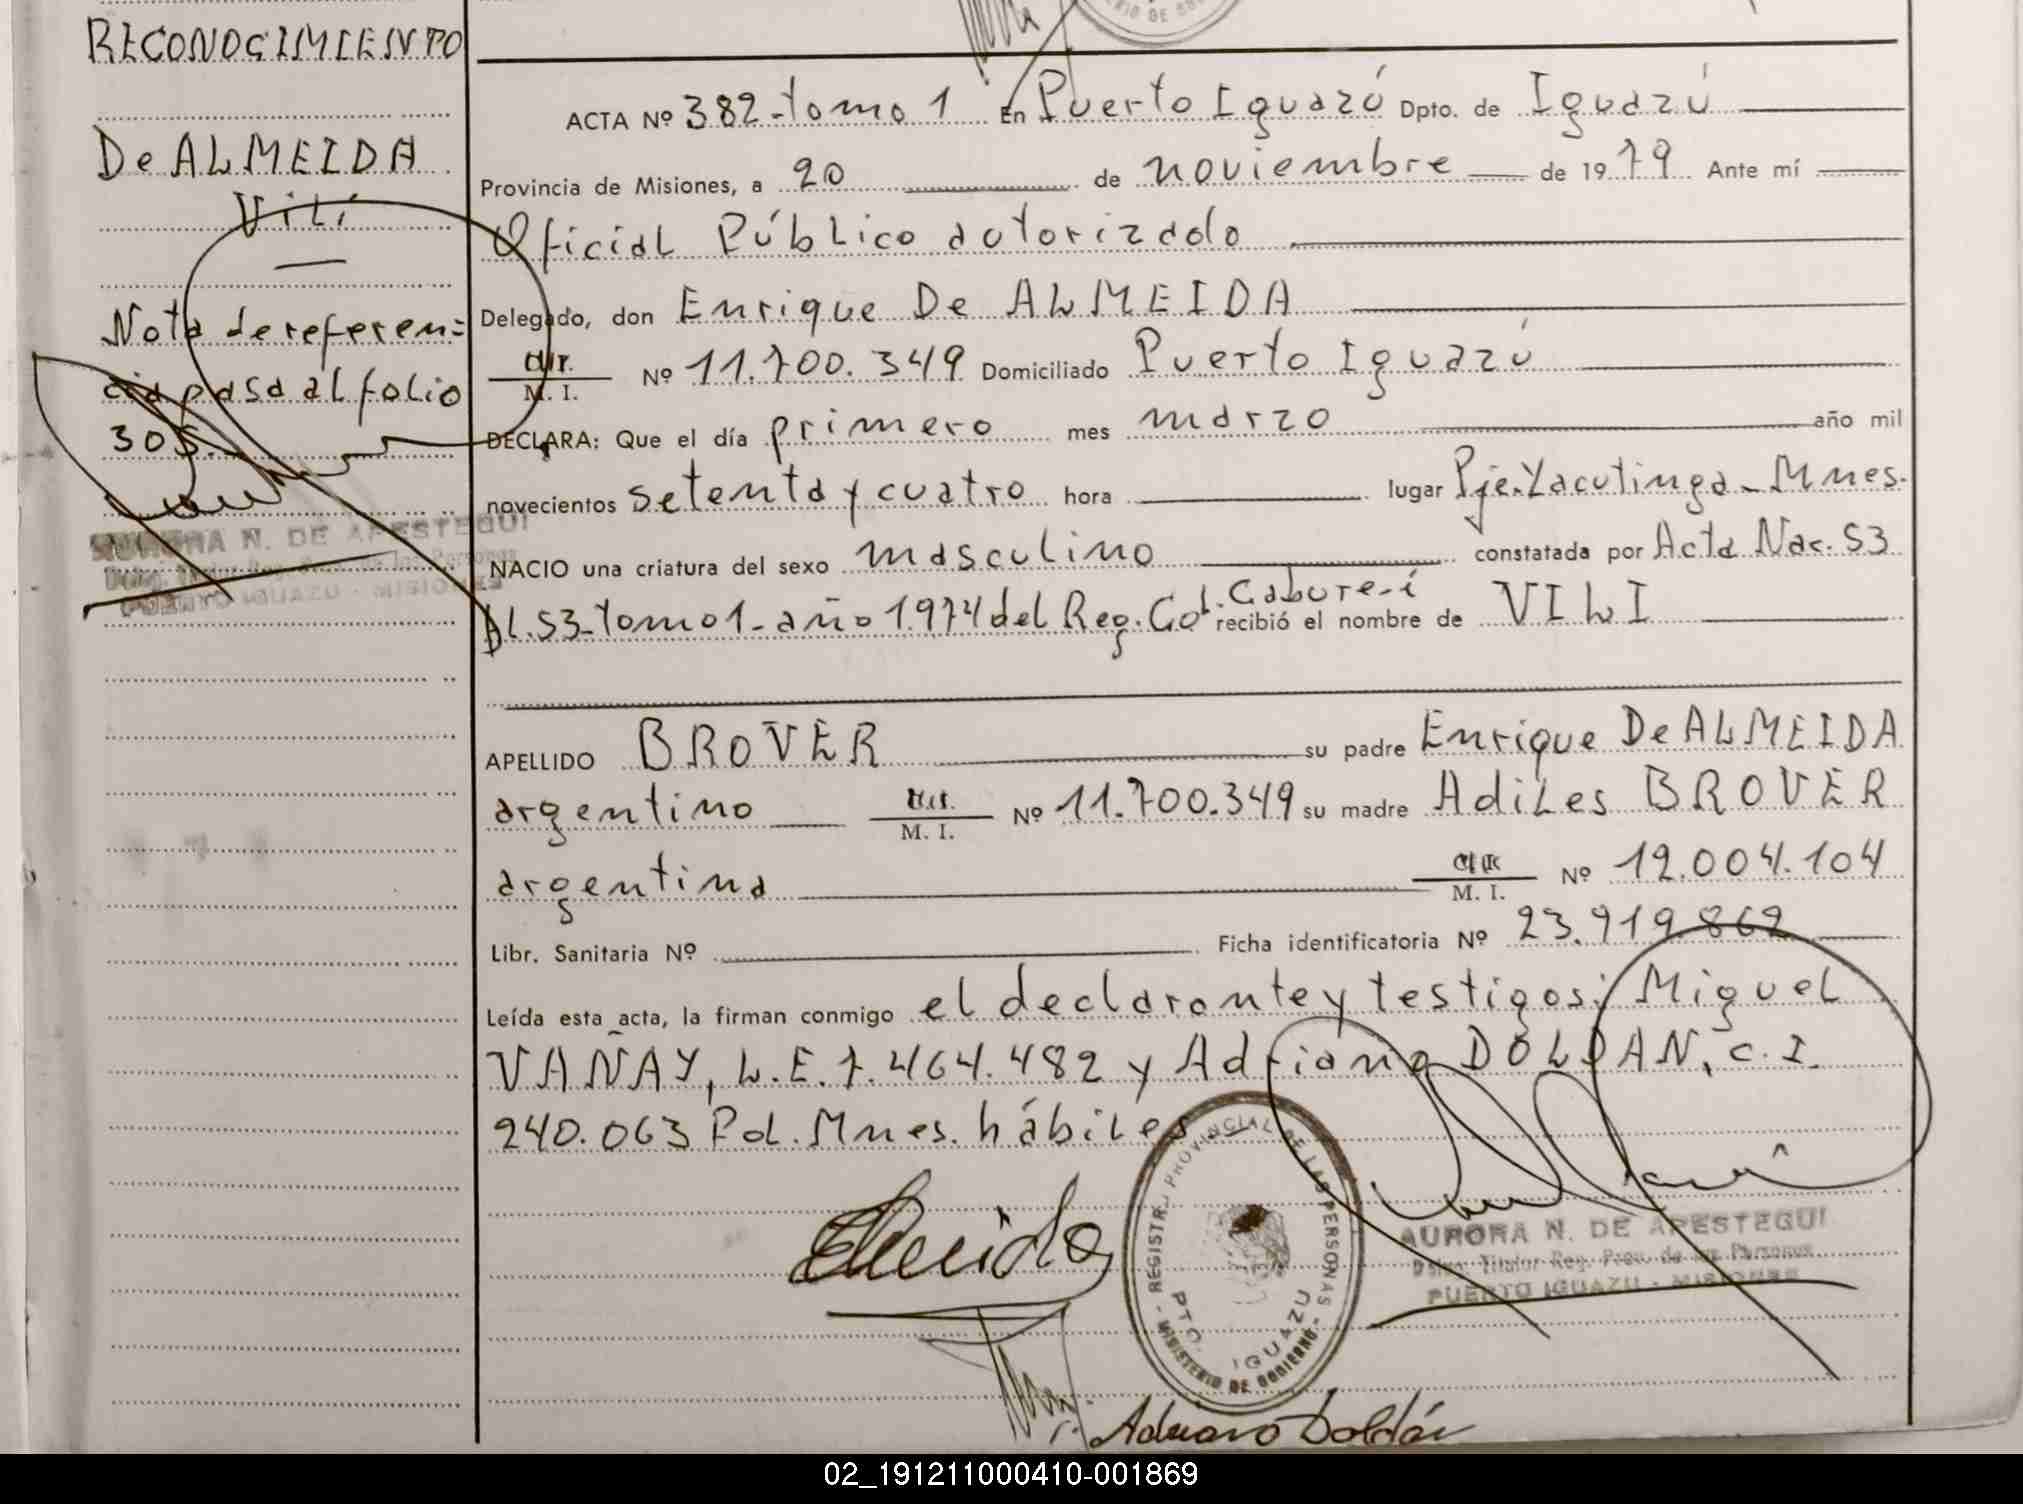 RECONOCIMIENTO
De ALMEIDA
Vili
Nota de referen=
cia pasa al folio
305.
AURORA N. DE APESTEGUI
PUERTO IGUAZU - MISIONES
ACTA Nº 382-tomo 1 En Puerto Iguazú Dpto. de Iguazú
Provincia de Misiones, a 20 de noviembre de 1979 Ante mí
Oficial Público autorizado
Delegado, don Enrique De ALMEIDA
M. I. Nº 11.700.349 Domiciliado Puerto Iguazú
DECLARA: Que el día primero mes marzo año mil
novecientos setenta y cuatro hora lugar Pje. Yacutinga - Mnes.
NACIO una criatura del sexo masculino constatada por Acta Nac. 53
Al. 53-tomo 1-año 1.974 del Reg. Col. Cabure-í recibió el nombre de VILI
APELLIDO BROVER su padre Enrique De ALMEIDA
argentino M. I. Nº 11.700.349 su madre Adiles BROVER
argentina M. I. Nº 12.004.104
Libr. Sanitaria Nº Ficha identificatoria Nº 23.919.862
Leída esta acta, la firman conmigo el declarante y testigos: Miguel
VAÑAY, L.E. 7.464.482 y Adriano DOLDAN, C.I.
240.063 Pol. Mnes. hábiles
REGISTR. PROVINCIAL DE LAS PERSONAS
PTO. IGUAZU
- MINISTERIO DE GOBIERNO -
AURORA N. DE APESTEGUI
Deleg. Titular Reg. Prov. de las Personas
PUERTO IGUAZU - MISIONES
Adriano Doldán
02_191211000410-001869